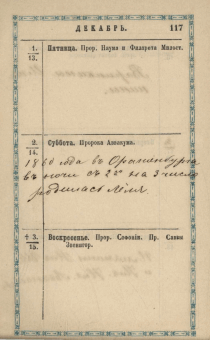 ДЕКАБРЬ. 117
1.
13.
Пятница. Прор. Наума и Филарета Милост.
2.
14.
Суббота. Пророка Аввакума.
1860 года въ Ораніенбургѣ
въ ночи съ 2го на 3 число
родилась Лёля
† 3.
15.
Воскресенье. Прор. Софонiи. Пр. Саввы
Звенигор.